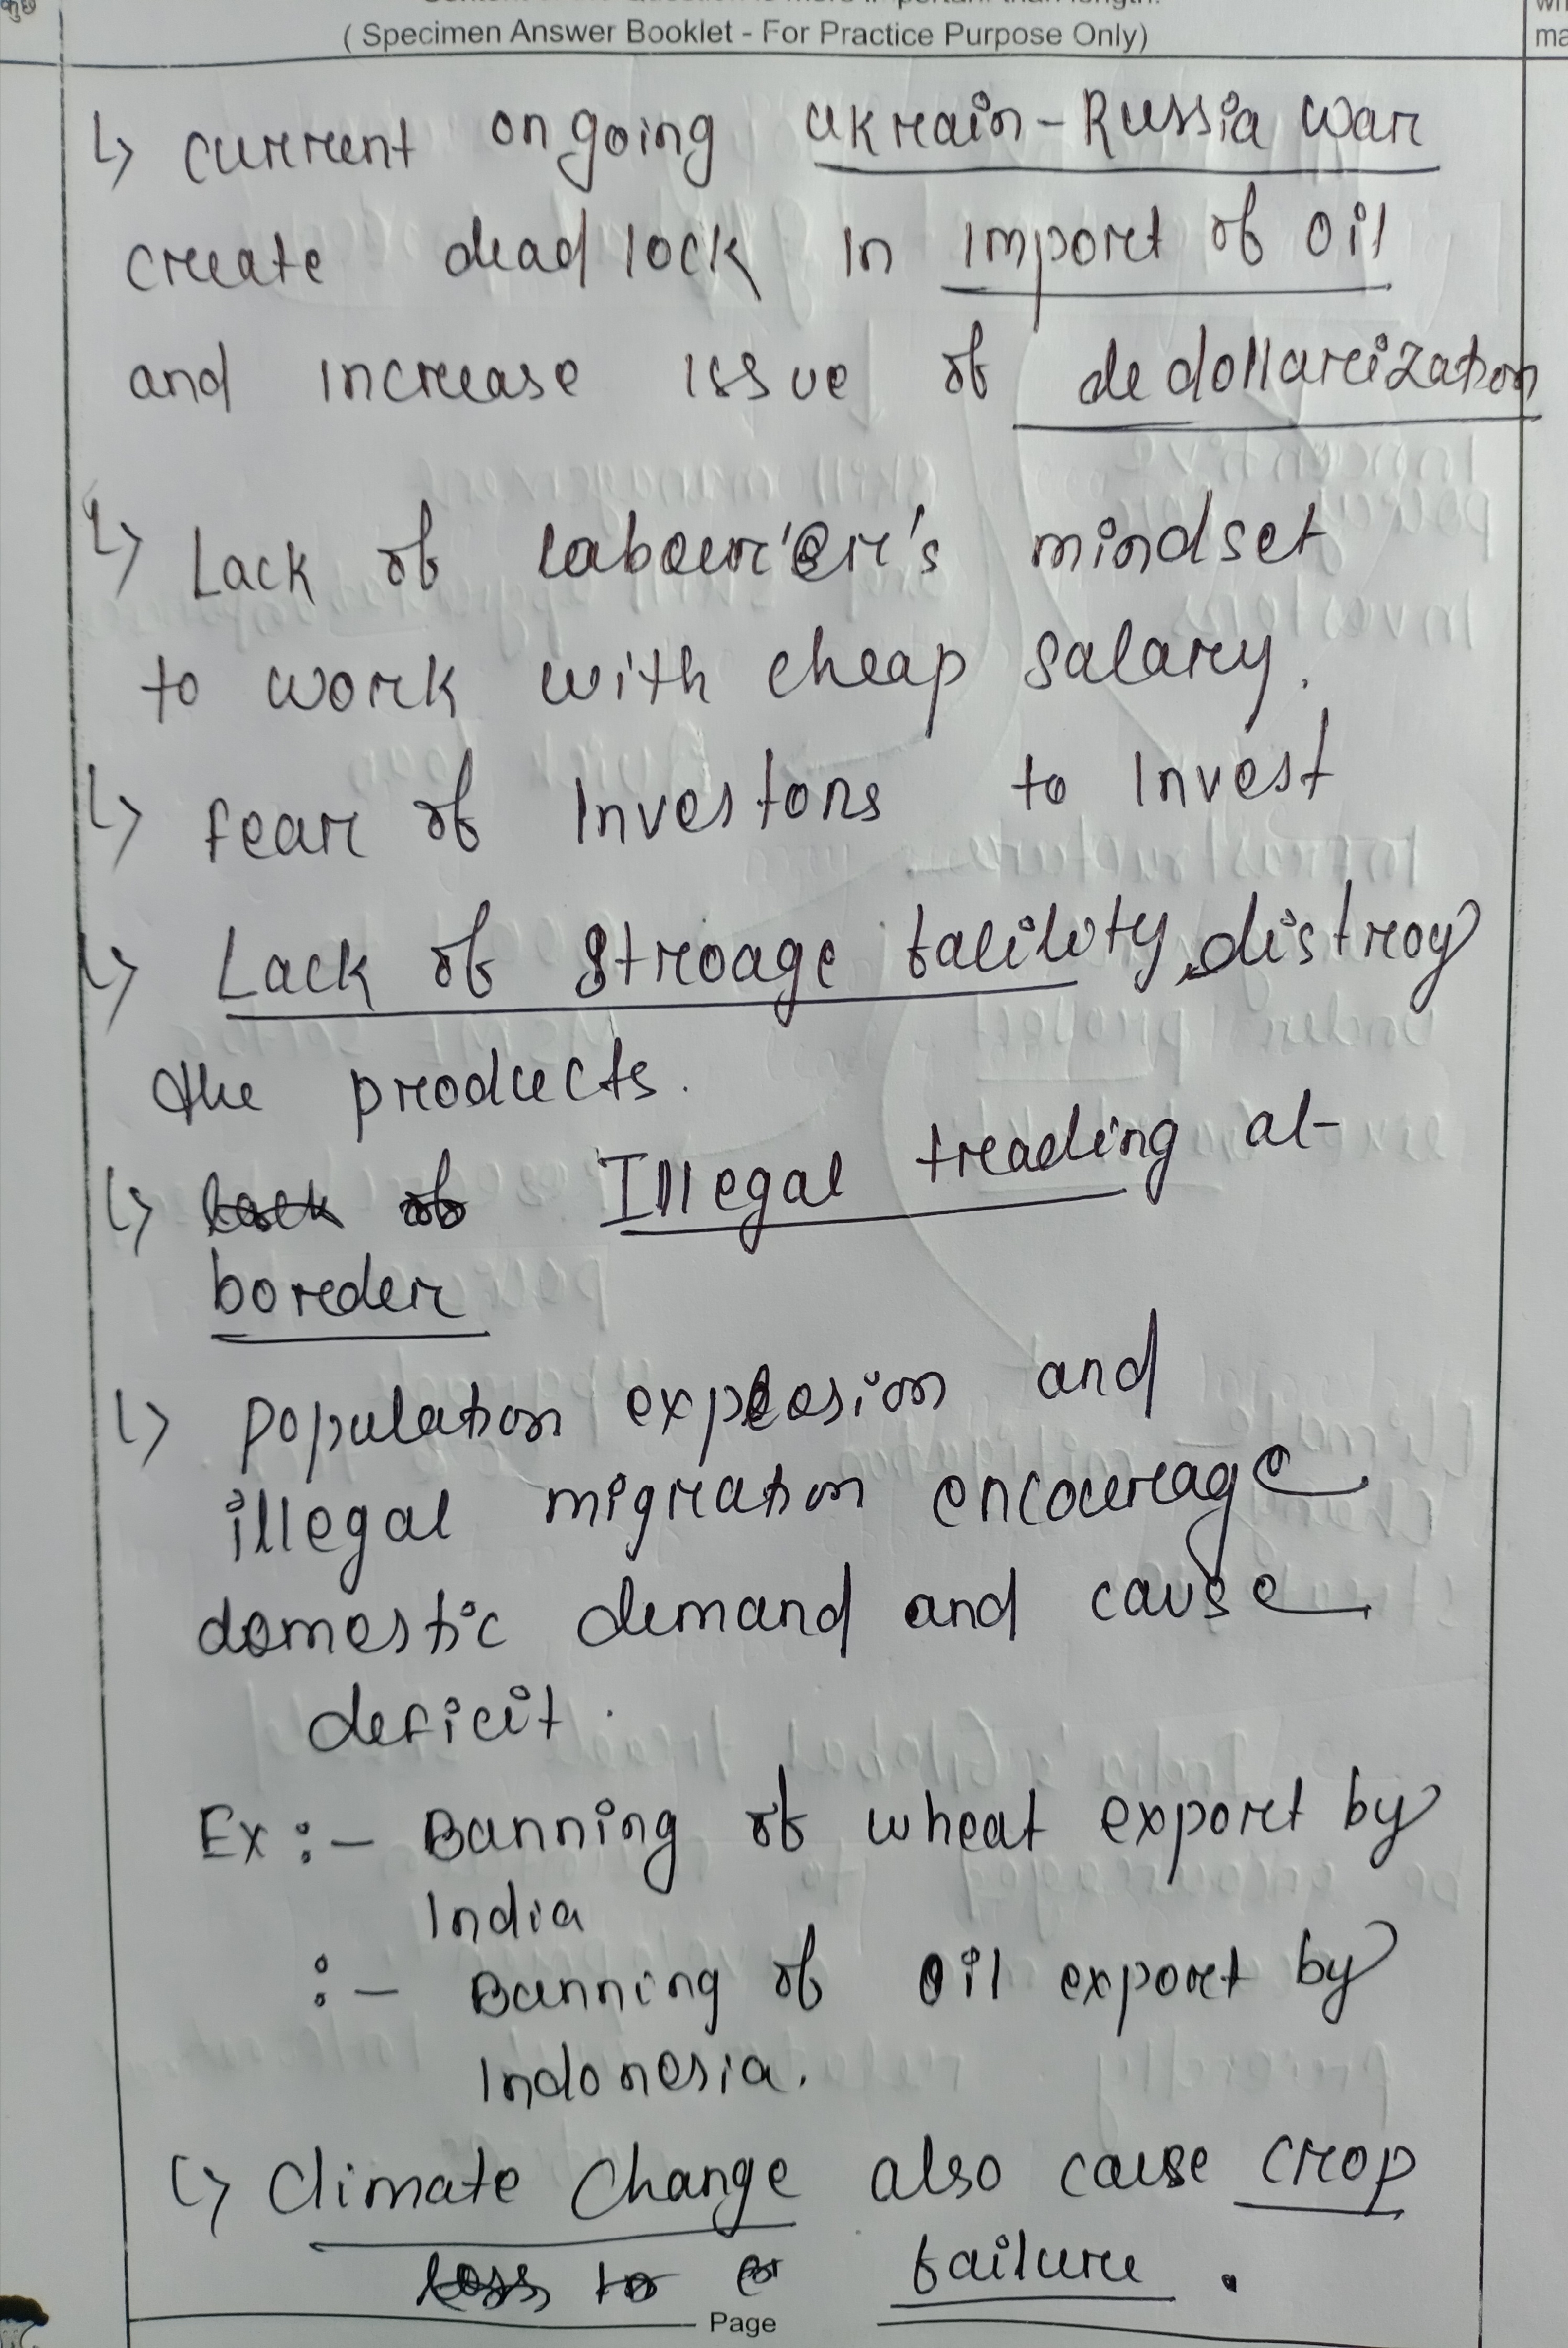 ( Specimen Answer Booklet - For Practice Purpose Only)
ma
↳ current ongoing Ukrain-Russia war
create deadlock in import of oil
and increase issue of dedollarization
↳ Lack of labour'er's mindset
to work with cheap salary.
↳ fear of Investors to Invest
↳ Lack of Stroage facility, distroy
the products.
↳ Illegal trading at
border
↳ population explosion and
illegal migration encourage
domestic demand and cause
deficit.
Ex :- Banning of wheat export by
India
:- Banning of oil export by
Indonesia.
↳ Climate Change also cause crop
failure.
Page